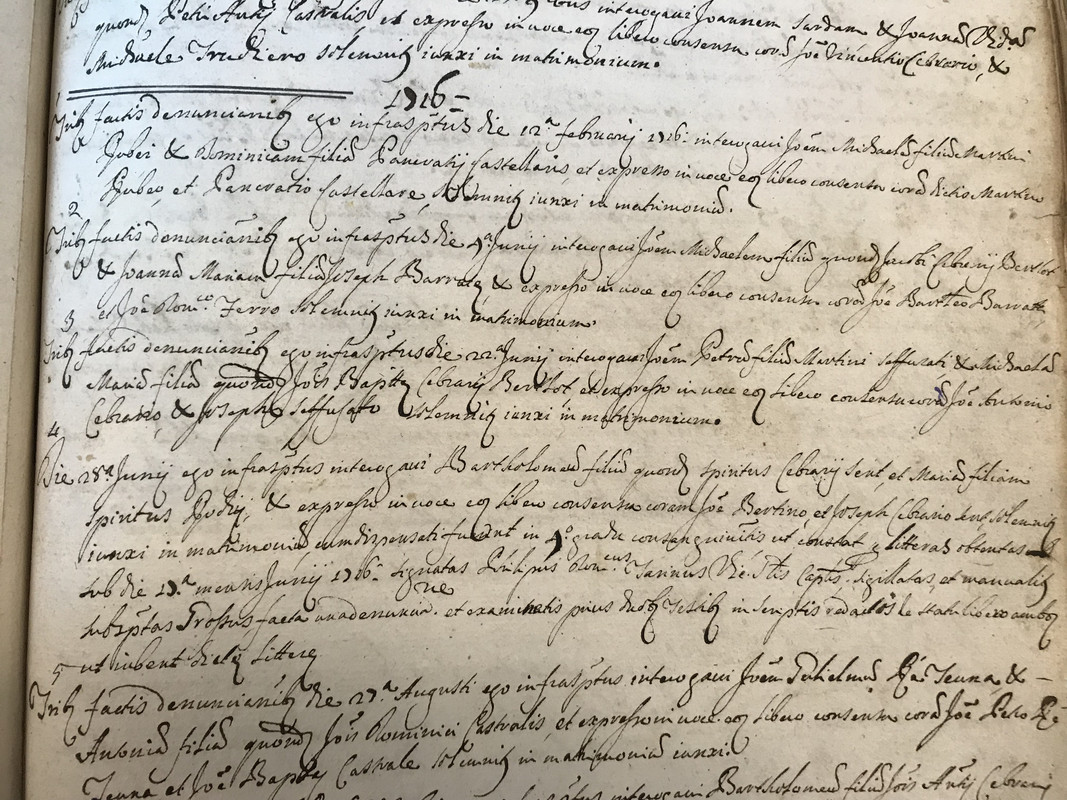 interogavi Joannem Sardam & Joannã
quond Petri Antij Castralis et expresso in voce eoz libero consensu corã Jõe Vincentio Cebrario, &
Michaele Truchero solemnitz iunxi in matrimonium.
1716
1
Tribz factis denuncianibz ego infrasptus die 12.a februarij 1716. interogavi Jõem Michaelẽ filiũ Martini
Rubei & Dominicam filiã Pancratij Castellaris, et expresso in voce eoz libero consensu corã dictis Martino
Rubeo, et Pancratio Castellare, solemnitz iunxi in matrimoniũ.
2
Tribz factis denuncianibz ego infrasptus die 4.a Junij interogavi Jõem Michaelem filiũ quond Jacobi Cebrarij Bertlot
& Joannã Mariam filiã Joseph Barralz, & expresso in voce eoz libero consensu corã Jõe Bartleo Barrale
et Jõe Dom.co Ferro solemnitz iunxi in matrimonium.
3
Tribz factis denuncianibz ego infrasptus die 22.a Junij interogavi Jõem Petrũ filiũ Martini Seffusati & Michaelã
Mariã filiã quond Jõis Baptæ Cebrarij Bertlot et expresso in voce eoz libero consensu corã Jõe Antonio
Cebrario & Joseph Seffusato solemnitz iunxi in matrimonium.
4
Die 28.a Junij ego infrasptus interogavi Bartholomeũ filiũ quond Spiritus Cebrarij Sent, et Mariã filiam
Spiritus , & expresso in voce eoz libero consensu coram Jõe Bertino, et Joseph Cebrario Sent solemnitz
iunxi in matrimoniũ cum dispensati fuerint in 4.o gradu consanguinitis ut constat p litteras obtentas
sub die 17.a mensis Junij 1716. signatas Philipus Dom.cus Tarinus Vic. Capts. sigillatas, et manualitz
subsptas , facta una denuncia.ne et examinatis prius duobz testibz in scriptis redactis de statu libero ambor
ut iubent dictæ litteræ
5
Tribz factis denuncianibz die 27.a Augusti ego infrasptus interogavi Jõem Guhelmũ Teuna, &
Antoniã filiã quond Jõis Dominici Castralis, et expresso in voce eoz libero consensu corã Jõe Petro
Teuna et Jõe Bapta Castrale solemnitz in matrimoniũ iunxi.
interogavi Bartholomeũ filiũ Jõis Antij Cebrarij